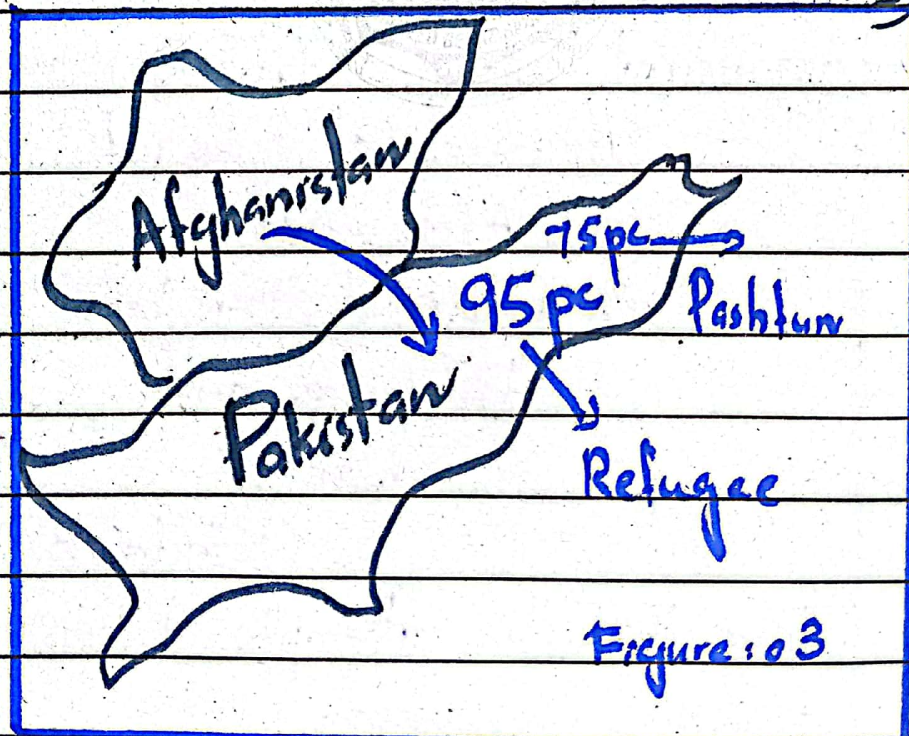 Afghanistan
75pc
95pc
Pashtun
Pakistan
Refugee
Figure:03